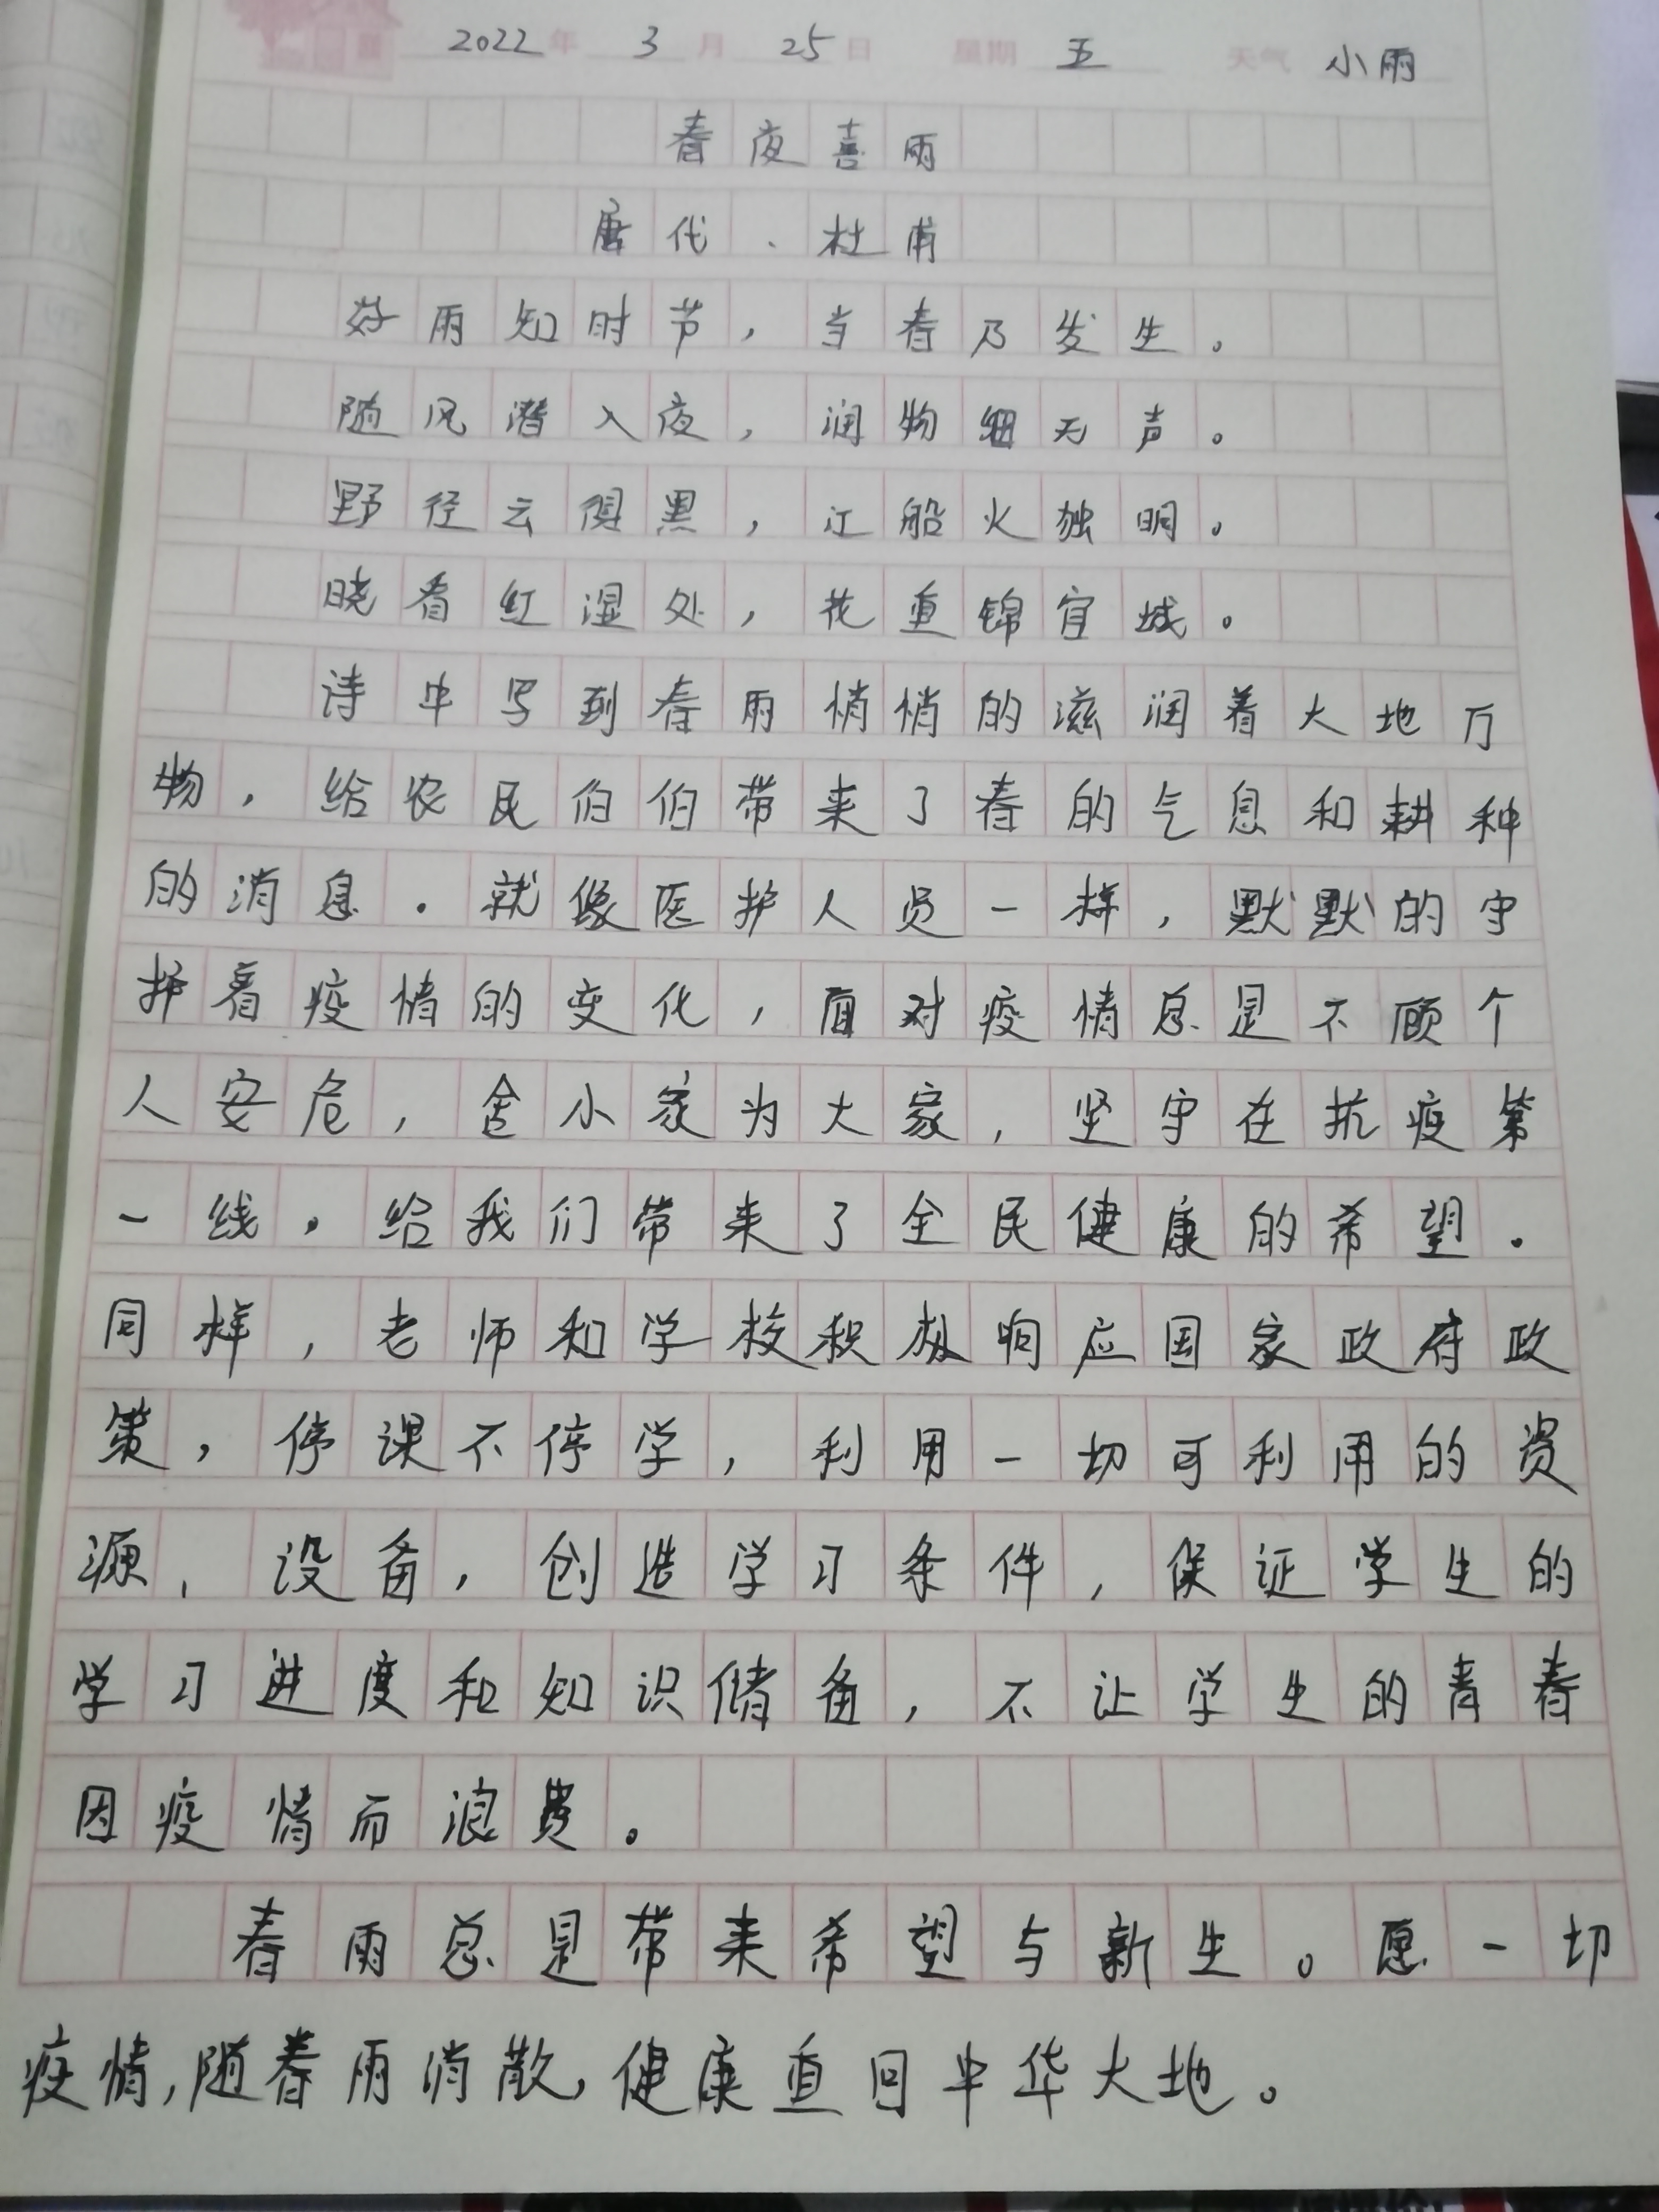 2022年 3月 25日 星期 五 天气 小雨
春夜喜雨
唐代、杜甫
好雨知时节，当春乃发生。
随风潜入夜，润物细无声。
野径云俱黑，江船火独明。
晓看红湿处，花重锦官城。
诗中写到春雨悄悄的滋润着大地万
物，给农民伯伯带来了春的气息和耕种
的消息．就像医护人员一样，默默的守
护着疫情的变化，面对疫情总是不顾个
人安危，舍小家为大家，坚守在抗疫第
一线。给我们带来了全民健康的希望．
同样，老师和学校积极响应国家政府政
策，停课不停学，利用一切可利用的资
源、设备，创造学习条件，保证学生的
学习进度和知识储备，不让学生的青春
因疫情而浪费。
春雨总是带来希望与新生。愿一切
疫情，随春雨消散，健康重回中华大地。